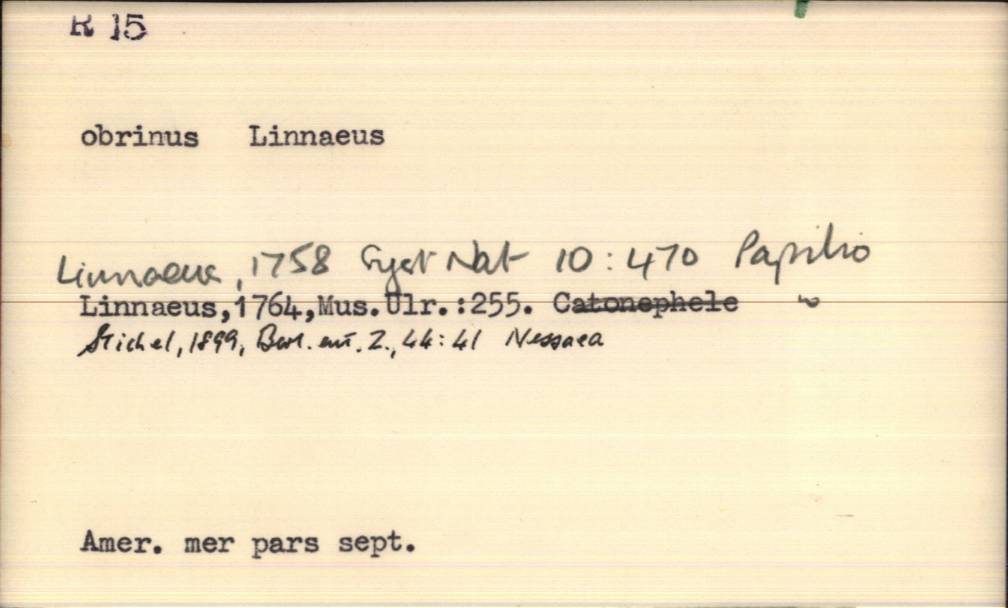 R 15
obrinus Linnaeus
Linnaeus, 1758 Syst Nat 10:470 Papilio
Linnaeus,1764,Mus.Ulr.:255. Catonephele "
Stichel, 1899, Berl. ent. Z., 44:41 Nessaea
Amer. mer pars sept.